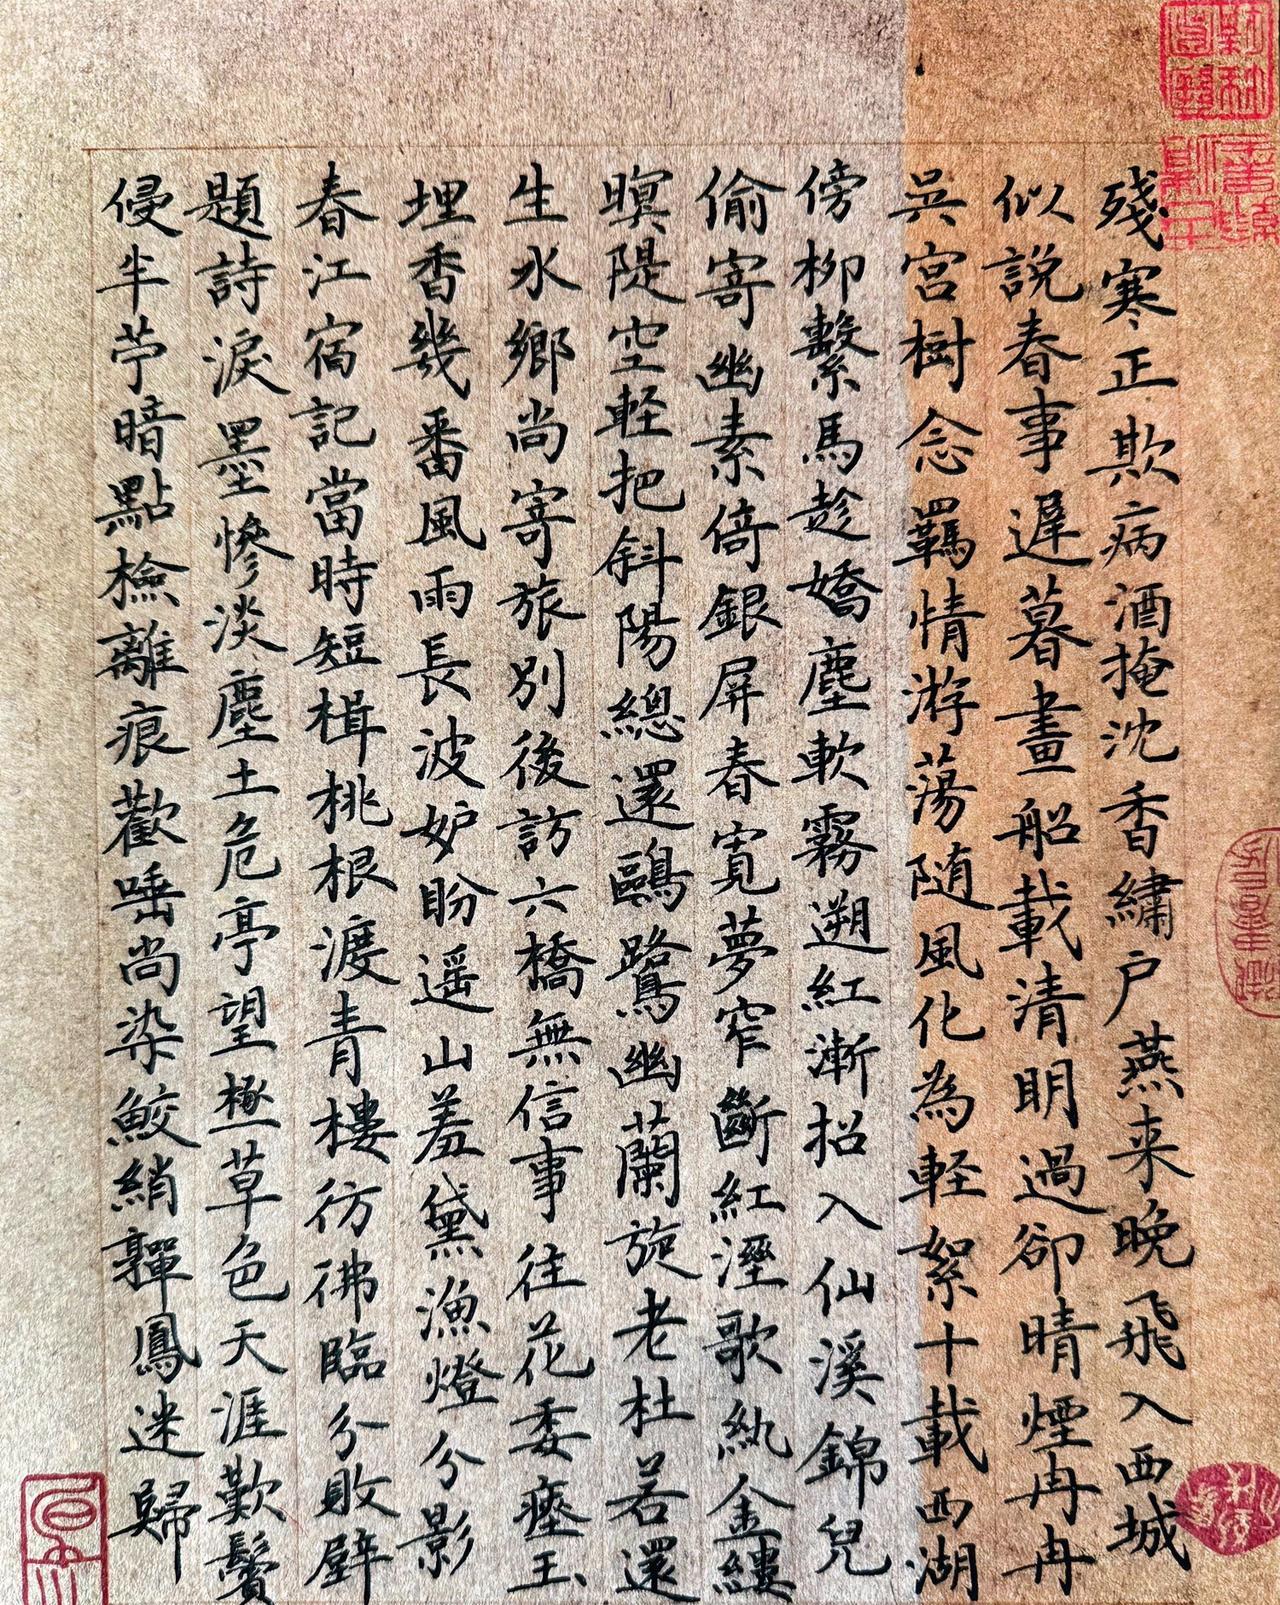 殘寒正欺病酒掩沈香繡户燕来晚飛入西城
似說春事遲暮畫船載清明過卻晴煙冉冉
吳宮樹念羈情游蕩随風化為輕絮十載西湖
傍柳繫馬趁嬌塵軟霧遡紅漸招入仙溪錦兒
偷寄幽素倚銀屏春寬夢窄斷紅溼歌紈金縷
暝隄空輕把斜陽總還鷗鷺幽蘭旋老杜若還
生水鄉尚寄旅別後訪六橋無信事往花委瘞玉
埋香幾番風雨長波妒盼遥山羞黛漁燈分影
春江宿記當時短楫桃根渡青樓彷彿臨分敗壁
題詩淚墨慘淡塵土危亭望極草色天涯歎鬢
侵半苧暗點檢離痕歡唾尚染鮫綃嚲鳳迷歸